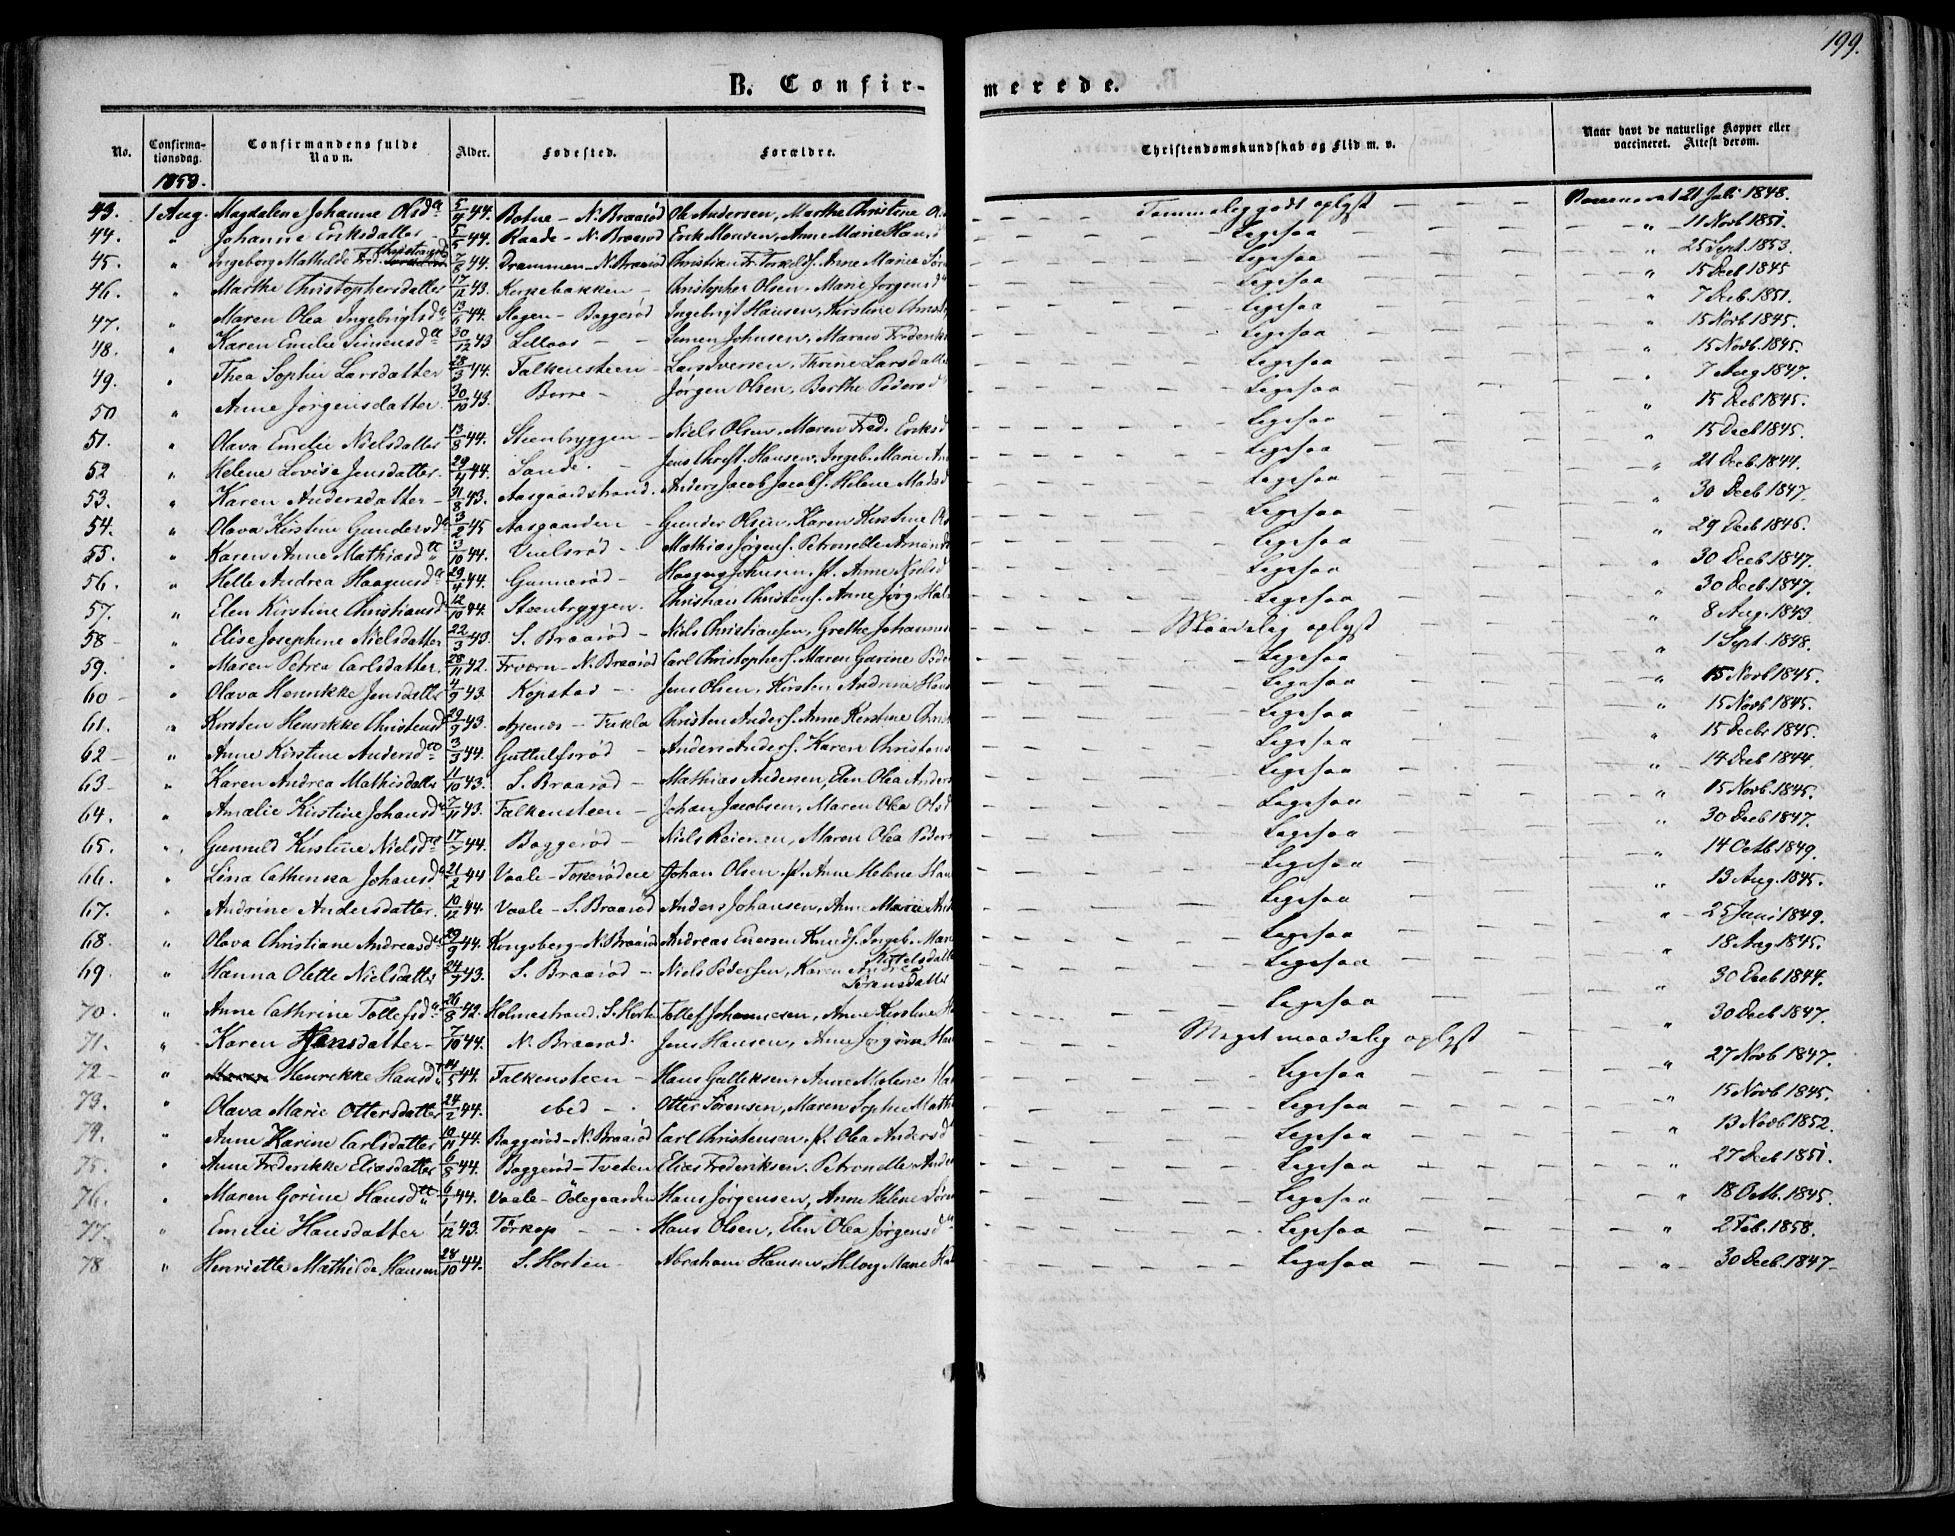 199.
B. Confirmerede.
No. | Confirmationsdag. | Confirmandens fulde Navn. | Alder. | Fødested. | Forældre. | Christendomskundskab og Flid m. v. | Naar havt de naturlige Kopper eller vaccineret. Attest derom.
1859.
43. 1 Aug. Magdalene Johanne Olsda 5/4 44. Botne - N. Braarød Ole Andersen, Marthe Christine Temmelig godt oplyst 21 Juli 1848.
44. " Johanne Eriksdatter 5/5 44. Raade - N. Braarød Erik Monsen, Anne Marie Hansd Ligesaa " 11 Novb 1851.
45. " Ingeborg Mathilde 7/8 44. Drammen - N. Braarød Christian Fr. Torkelds. Anne Marie Ligesaa " 25 Sept. 1853.
46. " Marthe Christophersdatter 17/12 43. Kirkebakken - Christopher Olsen, Marie Jørgensd Ligesaa " 15 Decb 1845
47. " Maren Olea Ingebrigtsda 13/6 44. Slagen - Baggerød Ingebrigt Hansen, Kirstine Ligesaa " 7 Decb. 1851.
48. " Karen Emelie Simensda 30/12 43 - - Simen Johnsen, Maren Frederiks Ligesaa " 15 Novb 1845.
49. " Thea Sophie Larsdatter 28/3 44. Falkensteen - Lars Iversen, Thrine Larsdatte Ligesaa " 15 Novb. 1845.
50 " Anne Jørgensdatter 30/10 43. Borre - Jørgen Olsen, Berthe Pedersd Ligesaa " 7 Aug 1847.
51. " Olava Emelie Nielsdatter 13/8 44. Steenbryggen - Niels Olsen, Maren Fred. Eriksd Ligesaa " 15 Decb 1845.
52 " Helene Lovise Jensdatter 29/4 44. Sande. - Jens Christ. Hansen, Ingeb. Marie Ligesaa " 15 Decb 1845.
53. " Karen Andersdatter - 31/8 43. Aasgaardstrand. Anders Jacob Jacobs. Helene Madsd Ligesaa " 21 Decb. 1844.
54. " Olava Kirstine Gundersda 3/2 45 Aasgaarden - Gunder Olsen, Karen Kirstine Ols Ligesaa " 30 Decb 1847.
55. " Karen Anne Mathiasda 3/10 44. - Mathias Jørgens. Petronelle Ligesaa " 29 Decb 1846.
56. " Helle Andrea Haagensda 29/4 44. Gunnerød - Haagen Johnsen, Anne Nielsd Ligesaa " 30 Decb. 1847.
57. " Elen Kirstine Christiansd 12/10 44. Steenbryggen. Christian Christens. Anne Jørg. Ligesaa " 30 Decb. 1847.
58 - " Elise Josephine Nielsdatter 22/3 43. S. Braarød - Niels Christiansen, Grethe Johannes Maadelig oplyst 8 Aug. 1843
59. " Maren Petrea Carlsdatter. 28/11 42. - N. Braarød Carl Christophers. Maren Gurine Peder Ligesaa " 1 Sept. 1848.
60 - " Olava Henrikke Jensdatter 4/9 43. Kopstad - Jens Olsen, Kirsten Andrea Hans Ligesaa " 15 Novb 1845.
61. " Kirsten Henrikke Christensd 29/9 43. Christen Anders. Anne Kirstine Christ Ligesaa " 15 Novb 1845.
62 - " Anne Kirstine Andersda 3/3 44. Guttulfsrød - Anders Anders. Karen Christens Ligesaa " 15 Decbr 1845.
63 - " Karen Andrea Mathisdatter 11/10 43. S. Braarød - Mathias Andersen, Elen Olea Anders Ligesaa " 14 Decb 1844.
64. " Amalie Kirstine Johansda 7/11 43. Falkensteen - Johan Jacobsen, Maren Olea Olsd Ligesaa " 15 Novb. 1845.
65. " Gunnild Kirstine Nielsda 17/7 44. Baggerød - Niels Reiersen, Maren Olea Peders Ligesaa " 30 Decb 1847.
66. " Lina Cathinka Johansda 21/2 44 Vaale - Johan Olsen. Anne Helene Han Ligesaa " 14 Octb. 1849.
67. " Andrine Andersdatter. 10/12 44. Vaale - S. Braarød Anders Johansen, Anne Marie And Ligesaa " 13 Aug. 1845.
68. " Olava Christiane Andreasd 29/9 44. Kongsberg - N. Braarød Andreas Enersen Knuds. Ingeb. Marie Kittelsdatter Ligesaa " 25 Juni 1849.
69. " Hanna Olette Nielsdatter 24/7 43. S. Braarød - Niels Pedersen, Karen Andrea Sørensdatter Ligesaa " 18 Aug 1845.
70. " Anne Cathrine Tollefsda 26/8 42. Holmestrand, S. Horten Tollef Johannesen, Anne Kirstine Ligesaa " 30 Decb 1844.
71. " Karen Jensdatter - 7/10 44. N. Braarød. Jens Hansen, Anne Jørgine Han Meget maadelig oplyst " 30 Decb 1847.
72 - " Henrikke Hansd 14/5 44. Falkensteen - Hans Gulliksen, Anne Malene Ligesaa " 27 Novb 1847.
73. " Olava Marie Ottersdatter 24/2 44. ibid - Otter Sørensen, Maren Sophie Math Ligesaa " 15 Novb 1845.
74. " Anne Karine Carlsdatter 10/11 44. Baggerød - N. Braarød Carl Christensen, Olea Andersd Ligesaa " 13 Novb 1852.
75. " Anne Frederikke Eliasdatter 6/8 44. Baggerød - Tveten Elias Frederiksen. Petronelle Ander Ligesaa " 27 Decb 1851.
76. " Maren Gorine Hansd 6/1 44. Vaale - Ødegaarden Hans Jørgensen, Anne Helene Søren Ligesaa " 18 Octb. 1845.
77. " Emelie Hansdatter 1/12 43. Tørkop - Hans Olsen, Elen Olea Jørgensd Ligesaa " 2 Feb. 1858.
78 " Henriette Mathilde Hansen 28/10 44. S. Horten - Abraham Hansen, Marie Ligesaa " 30 Decb. 1847 -